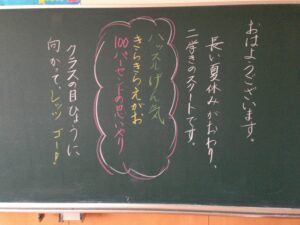 おはようございます。
長い夏休みがおわり、
二学きのスタートです。
ハッスルげん気
きらきらえがお
100パーセントの思いやり
クラスの目ひょうに
向かって、レッツ ゴー!